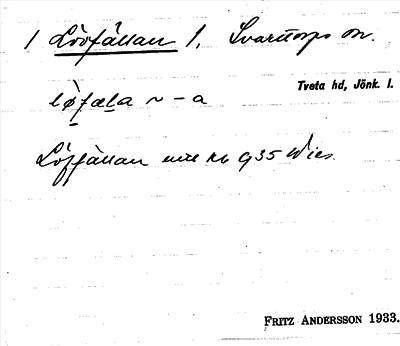 1 Lövfällan 1. Svarttorps sn.
Tveta hd, Jönk. l.
lø̀fæla ~ – a
Löffällan
FRITZ ANDERSSON 1933.